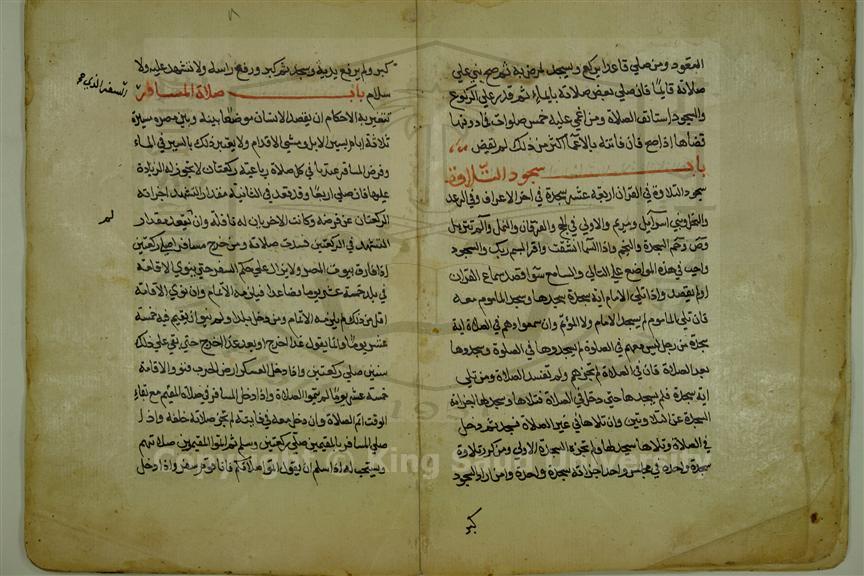 القعود ومن صلي قاعدا يركع ويسجد لمرض به ثم صح بني علي
صلاته قايما فان صلي بعض صلاته بايماء ثم قدر علي الركوع
والسجود استانف الصلاة ومن اغمي عليه خمس صلوات فما دونها
قضاها اذا صح فان فاتته بالاغماء اكثر من ذلك لم يقض
باب سجود التلاوة
سجود التلاوة في القران اربعة عشر سجدة في اخر الاعراف وفي الرعد
والنحل وبني اسرآيل ومريم والاولي في الحج والفرقان والنمل والم تنزيل
وص وحم السجدة والنجم واذا السما انشقت واقرا باسم ربك والسجود
واجب في هذه المواضع علي التالي والسامع سوا قصد سماع القران
اولم يقصد واذا تلي الامام اية سجدة سجدها وسجد الماموم معه
فان تلي الماموم لم يسجد الامام ولا المؤتم وان سمعوا وهم في الصلاة اية
سجدة من رجل ليس معهم في الصلوة لم يسجدوها في الصلوة وسجدوها
بعد الصلاة فان في الصلاة لم تجزهم ولم تفسد الصلاة ومن تلي
اية سجدة فلم يسجدها حتي دخل في الصلاة فتلاها وسجدها اجزاته
السجدة عن التلاوتين وان تلاها في غير الصلاة فسجد ثم دخل
في الصلاة وتلاها سجدها ولم تجزه السجدة الاولي ومن كرر تلاوة
سجدة واحدة في مجلس واحد اجزاته سجدة واحدة ومن اراد السجود
كبر
٨
كبر ولم يرفع يديه وسجد ثم كبر ورفع راسه ولا تشهد عليه ولا
سلام باب صلاة المسافر
السفر الذي
تتغير به الاحكام ان يقصد الانسان موضعا بينه وبين مصره مسيرة
ثلاثة ايام بسير الابل ومشي الاقدام ولا يعتبر ذلك بالسير في الماء
وفرض المسافر عندنا في كل صلاة رباعية ركعتان لا يجوز له الزيادة
عليها فان صلي اربعا وقد قعد في الثانية مقدار التشهد اجزاته
الركعتان عن فرضه وكانت الاخريان له نافلة وان لم يقعد مقدار
التشهد في الركعتين فسدت صلاته ومن خرج مسافرا صلي ركعتين
اذا فارق بيوت المصر ولا يزال علي حكم السفر حتي ينوي الاقامة
في بلد خمسة عشر يوما فصاعدا فيلزمه الاتمام وان نوي الاقامة
اقل من ذلك لم يلزمه الاتمام ومن دخل بلدا ولم ينو ان يقيم فيه خمسة
عشر يوما وانما يقول غدا اخرج او بعد غد اخرج حتي بقي علي ذلك
سنين صلي ركعتين واذا دخل العسكر ارض الحرب فنووا الاقامة
خمسة عشر يوما لم يتموا الصلاة واذا دخل المسافر في صلاة المقيم مع بقاء
الوقت اتم الصلاة وان دخل معه في فايتة لم تجز صلاته خلفه واذا
صلي المسافر بالمقيمين صلي ركعتين وسلم ثم اتموا المقيمين صلاتهم
ويستحب له اذا سلم ان يقول اتموا صلاتكم فانا قوم سفر واذا دخل
Copyright © King Saud University